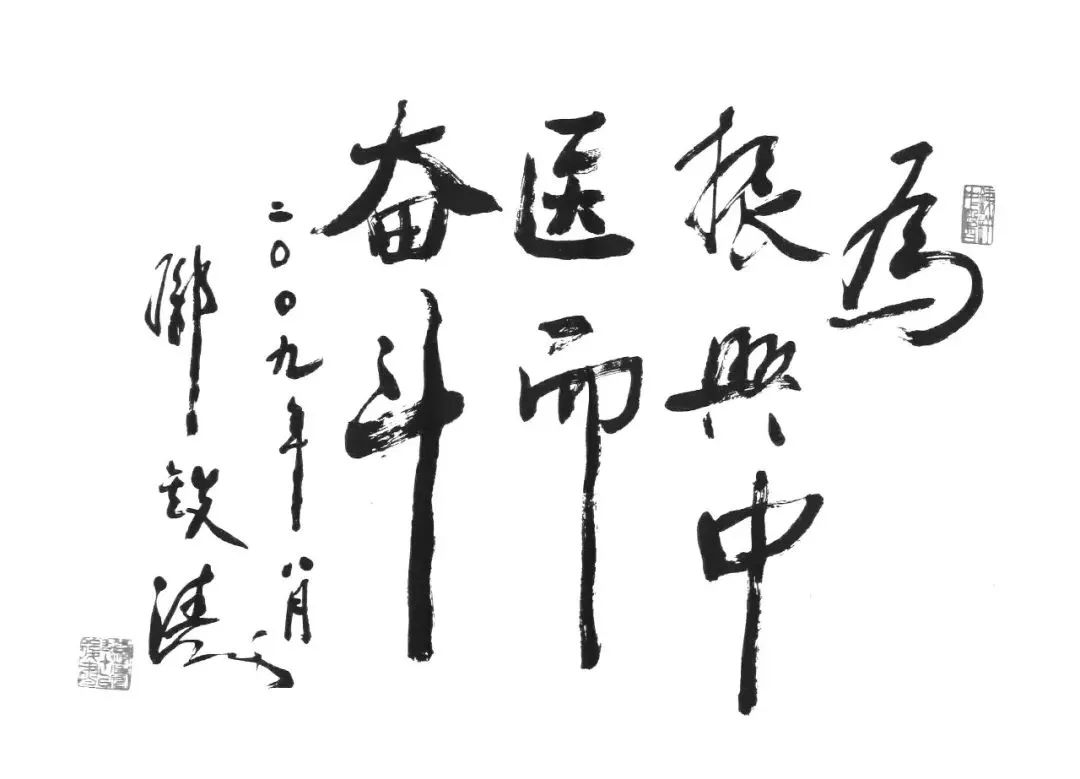 為
振興中
医而
奋斗
二〇〇九年八月